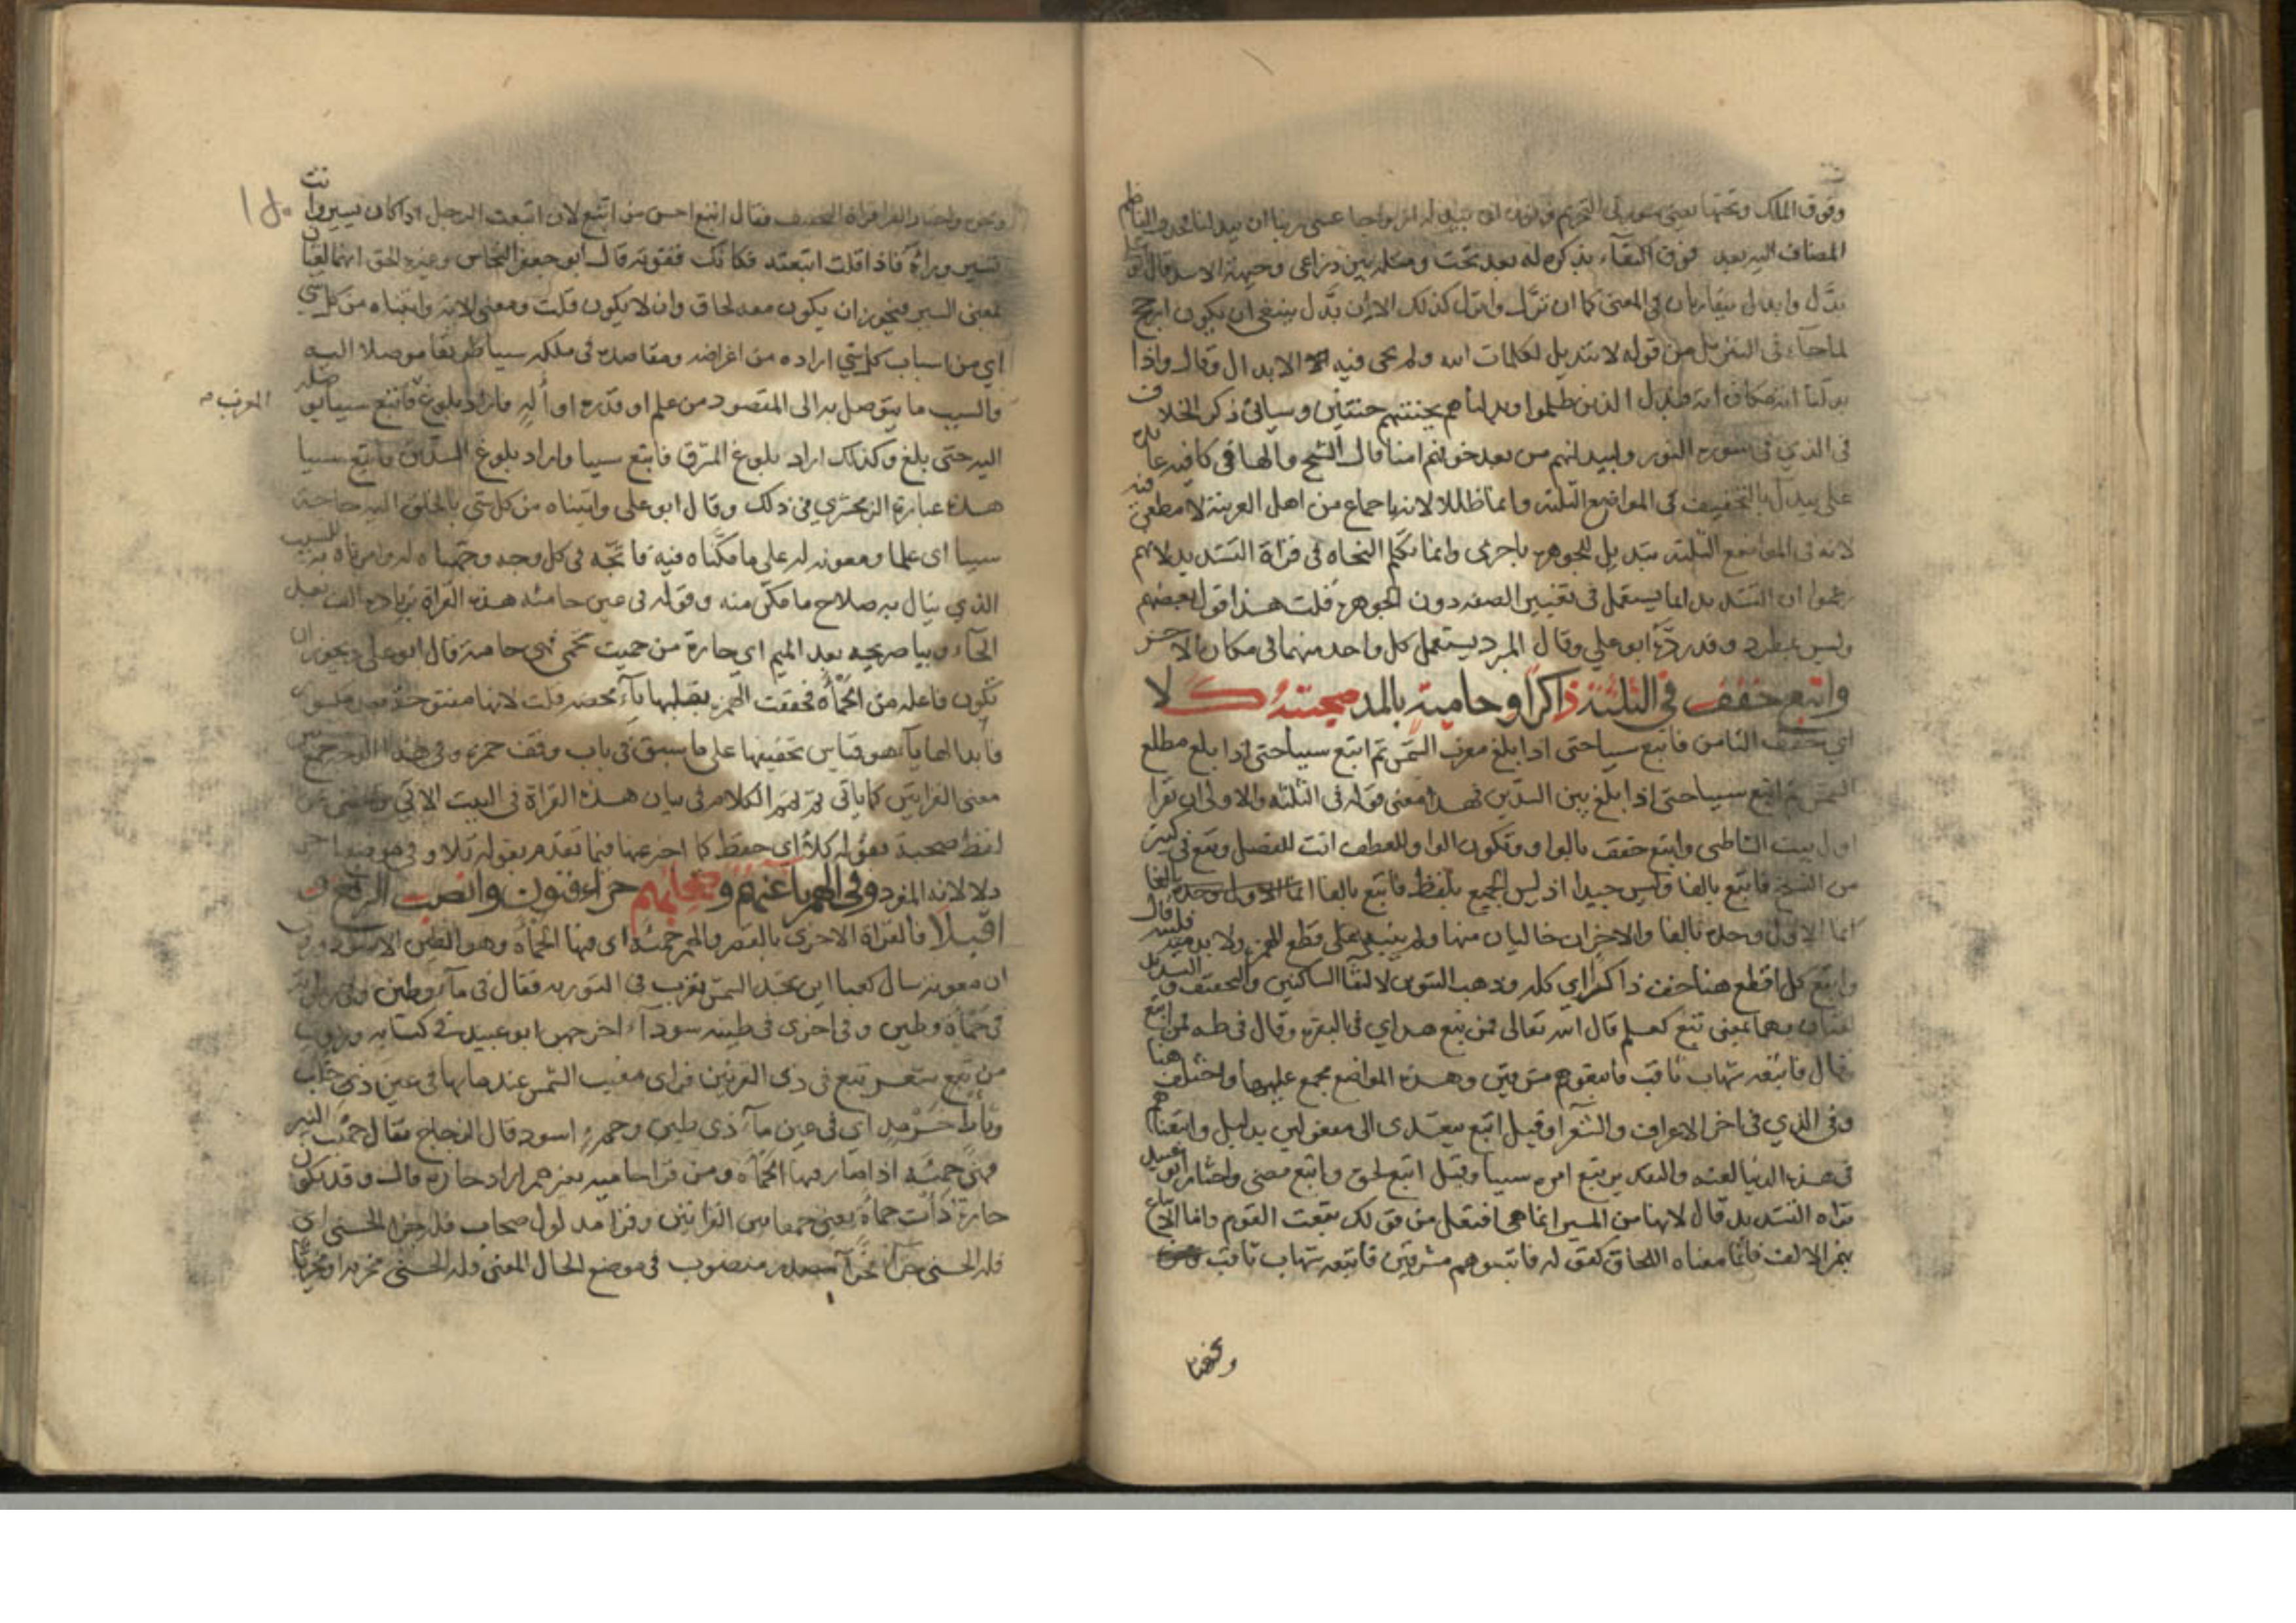 وفوق الملك وتحتها يعني سورتي التحريم
المضاف اليه بعد فوق البناء بذكره له بعد تحت ومثله بين ذراعى وجبهة الاسد قال
بدّل وابدل يتقاربان في المعنى كما ان نزّل وانزل كذلك الا ان بدّل ينبغي ان يكون ارجح
لما جاء في التنزيل من قوله لا تبديل لكلمات الله ولم يجى فيه الابدال وقال واذا
بدلنا اية مكان اية فبدل الذين ظلموا وبدلناهم بجنتيهم جنتين وسياتي ذكر الخلاف
في الذي في سورة النور وليبدلنهم من بعد خوفهم امنا قال الشيخ والها في كافيه عائدة
على يبدل بالتخفيف في المواضع الثلثة وانما ظللا لانه باجماع من اهل العربية لا مطعن فيه
لانه في المواضع الثلثة تبديل الجوهر باخرى وانما تكلم النحاة في قراة التشديد لانهم
زعموا ان التشديد انما يستعمل في تغيير الصفة دون الجوهر قلت هذا قول بعضهم
وليس بمطرد وقد ردّه ابو علي وقال المبرد يستعمل كل واحد منهما في مكان الاخر
واتبع خفف في الثلثة ذاكرا وحامية بالمد صحبته كلا
اي خفف الثامن فاتبع سببا حتى اذا بلغ مغرب الشمس ثم اتبع سببا حتى اذا بلغ مطلع
الشمس ثم اتبع سببا حتى اذا بلغ بين السدين فهذا معنى قوله في الثلثة والاولى ان تقرا
اول بيت الشاطبي واتبع خفف بالواو وتكون الواو للعطف انت للفصل ويقع في كثير
من النسخ فاتبع بالفا وليس جيدا اذ ليس الجميع بلفظ فاتبع بالفا
انما الاول وحده بالفا والاخران خاليان منها ولم ينبه على قطع الهمز ولا بد منه
واتبع كل اقطع هنا خف ذاكرا اي كله وذهب التنوين لالتقا الساكنين والتخفيف والتشديد
لغتان وهما بمعنى تبع كعلم قال الله تعالى فمن تبع هداي في البقرة وقال في طه فمن اتبع
قال فاتبعه شهاب ثاقب فاتبعوهم مشرقين وهذه المواضع مجمع عليها واختلف هنا
وفي الذي في اخر الاعراف والشعرا وقيل اتبع يتعدى الى مفعولين بدليل واتبعناهم
في هذه الدنيا لعنة والتقدير اتبع امره سببا وقيل اتبع لحق واتبع مضى واختار ابو عبيد
قراة التشديد قال لانها من المسير انما هي افتعل من قولك تبعت القوم واما اتبع
بهمز الالف فانما معناه اللحاق كقوله فاتبعوهم مشرقين فاتبعه شهاب ثاقب
ونحوه
ونحوه واختار الفرا قراة التخفيف فقال اتبع احسن من اتبع لان اتبعت الرجل اذا كان يسير وانت
تسير وراه فاذا قلت اتبعته فكانك قفوته قال ابو جعفر النحاس وغيره الحق انهما لغتان
بمعنى السير فيجوز ان يكون معه لحاق وان لا يكون قلت ومعنى الاية واتيناه من كل شي
اي من اسباب كل شي اراده من اغراضه ومقاصده في ملكه سببا طريقا موصلا اليه
والسبب ما يتوصل به الى المقصود من علم او قدرة او الة فاراد بلوغ فاتبع سببا يوصله
المغرب
اليه حتى بلغ وكذلك اراد بلوغ المشرق فاتبع سببا واراد بلوغ السدين فاتبع سببا
هذه عبارة الزمخشري في ذلك وقال ابو علي واتيناه من كل شي بالخلق اليه حاجة
سببا اى علما ومعونة له على ما مكناه فيه فاتجه في كل وجه وجهناه له وامرناه به للسبب
الذي ينال به صلاح ما مكن منه وقوله في عين حامئة هذه القراة بزيادة الف بعد
الحاء وبيا صريحة بعد الميم اي حارة من حميت تحمى فهي حامية قال ابو علي ويجوز ان
تكون فاعلة من الحمأة فخففت الهمزة بقلبها ياء محضة قلت لانها مفتوحة بعد مكسور
فابدالها ياء هو قياس تخفيفها على ما سبق في باب وقف حمزة وفي هذا الوجه جمع بين
معنى القراتين كما ياتي ثم تمم الكلام في بيان هذه القراة في البيت الاتي
لفظ صحبة بقوله كلا اي حفظ كما اخبر عنها فيما تقدم بقوله تلا وفي موضع اخر
دلا لانه المفرد وفي الهمز ياء عنهم وصحابهم جزاء فنون وانصب الرفع
اقبلا فالقراة الاخرى بالقصر والهمز حمئة اى فيها الحمأة وهو الطين الاسود وروي
ان معوية سال كعبا اين تجد الشمس تغرب في التورية فقال في ماء وطين وفي رواية
في حمأة وطين وفي اخرى في طينة سوداء اخرجهن ابو عبيد في كتابه
من شعر تبع في ذي القرنين فراى مغيب الشمس عند مابها في عين ذي خلب
وثأط حرمد اي في عين ماء ذي طين وحمء اسود قال الزجاج يقال حمئت البير
فهي حمئة اذا صار فيها الحمأة ومن قرا حامية بغير همز اراد حارة قال وقد تكون
حارة ذات حمأة يعني جمعا بين القراتين وقرا مدلول صحاب فله جزاء الحسنى اي
فله الحسنى جزاء فجزاء مصدر منصوب في موضع الحال المعنى فله الحسنى مجزية او مجزيا